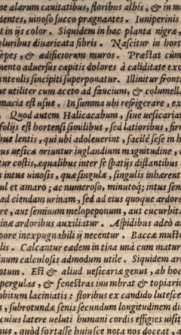 ne alarum cauitatibus, floribus albis, & in m
dentes, uinoso succo prægnantes. Iuniperinis
it in ijs color. Siquidem in hac planta nigra,
pluribus diuaricata fibris. Nascitur in hort
epes, & ædificiorum muros. Præstat cùm
nento aduersus capitis dolores à caliditate exc
inteolis sincipiti superponatur. Illinitur fronti
ue utiliter cum aceto ad faucium, & columella
macia est usus. In summa ubi refrigerare, ex
Quod autem Halicacabum, siue uesicaria
folijs est hortensi similibus, sed latioribus, firm
nus lentis, qui ubi adoleuerint, facilè sese in t
us uesicæ oriuntur iuglandium magnitudine,
tur costis, æqualibus inter se spatijs distantibus
intus uinosis, quæ singulæ, singulis inhærent
ul et amaro; ac numeroso, minutoq; intus sem
ad ciendam urinam, sed ad eius quoque ardore
re, aut semium melopeponum, aut cucurbita
inæ ardoribus auxiliatur. Aspidibus adeò a
pore inexpugnabili necentur. Baccæ mustis
lis. Calcantur eædem in tina unà cum matur
inum calculosis admodum utile. Siquidem ar
tum. Est & aliud uesicariæ genus, ab hoc
pergulas, & fenestras inumbrat & topiario
mbitum laciniatis: floribus ex candido lutesce
, subrotunda, senis secundum longitudinem dis
nius latere ueluti humani cordis effigies uisit
quòd fortasse huiusce nota nos doceat,